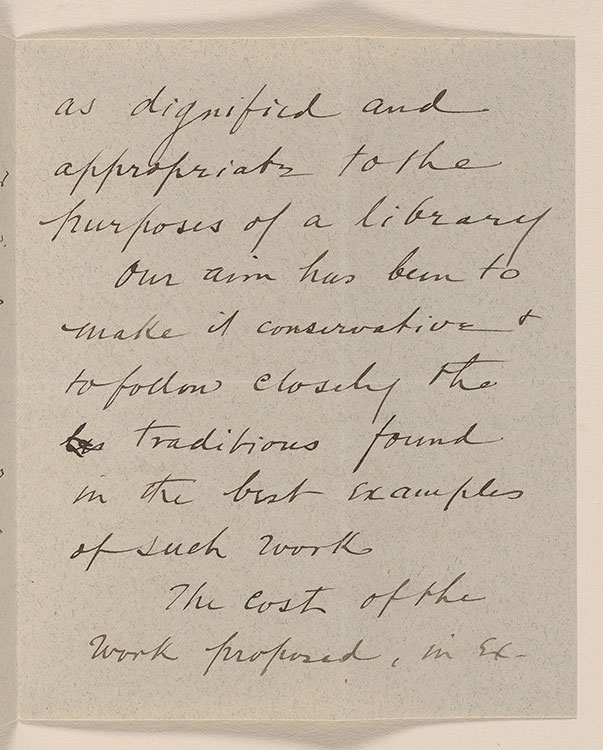 as dignified and
appropriate to the
purposes of a library
Our aim has been to
make it conservative +
to follow closely the
traditions found
in the best examples
of such work
The cost of the
work proposed, in ex-